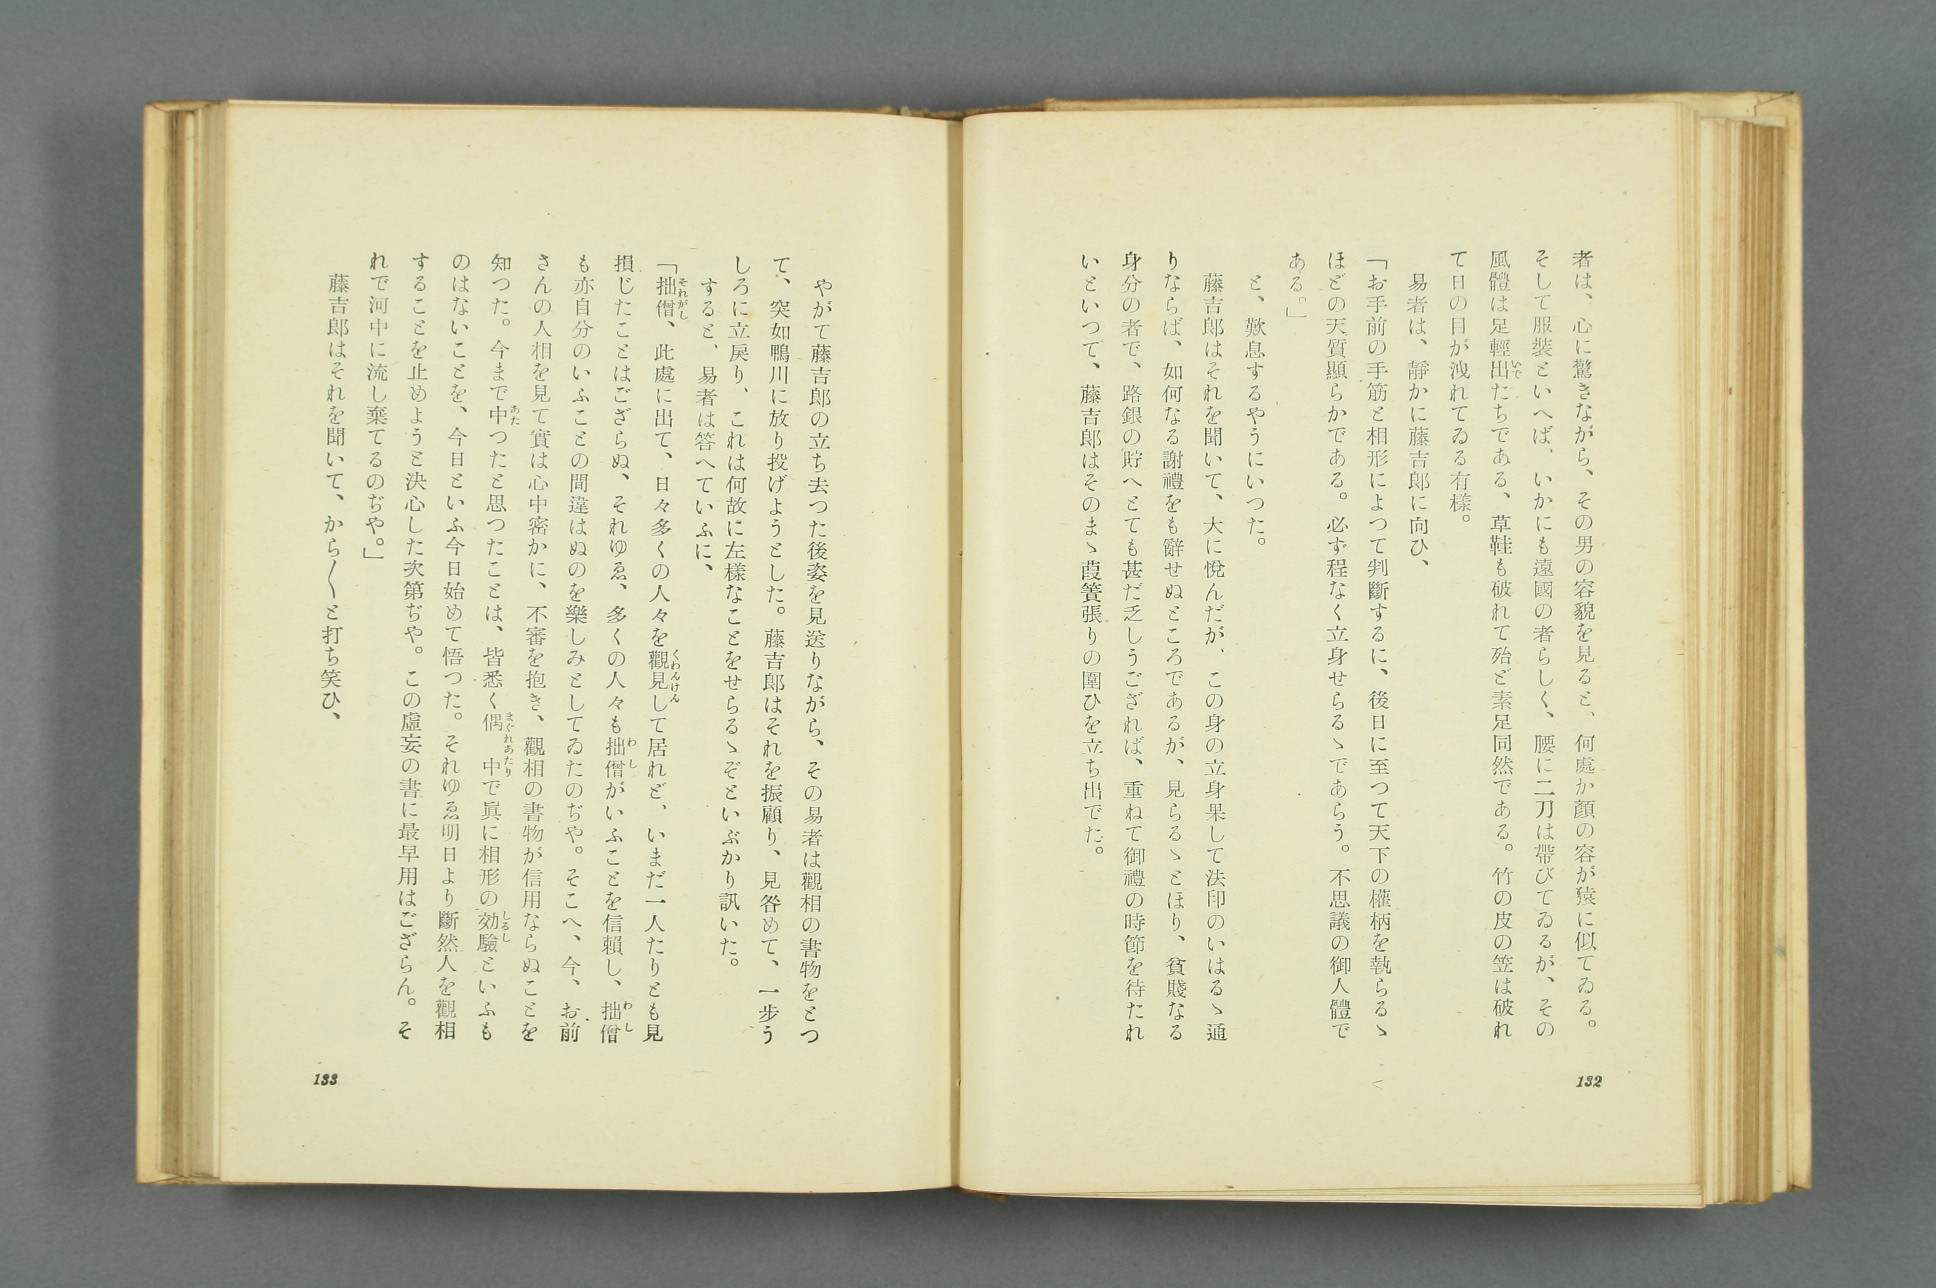 者は、心に驚きながら、その男の容貌を見ると、何處か顏の容が猿に似てゐる。
そして服裝といへば、いかにも遠國の者らしく、腰に二刀は帶びてゐるが、その
風體は足輕出たちである、草鞋も破れて殆ど素足同然である。竹の皮の笠は破れ
て日の目が洩れてゐる有樣。
易者は、靜かに藤吉郎に向ひ、
「お手前の手筋と相形によつて判斷するに、後日に至つて天下の權柄を執らるゝ
ほどの天質顯らかである。必ず程なく立身せらるゝであらう。不思議の御人體で
ある。」
と、歎息するやうにいつた。
藤吉郎はそれを聞いて、大に悅んだが、この身の立身果して法印のいはるゝ通
りならば、如何なる謝禮をも辭せぬところであるが、見らるゝとほり、貧賤なる
身分の者で、路銀の貯へとても甚だ乏しうござれば、重ねて御禮の時節を待たれ
いといつて、藤吉郎はそのまゝ葭簀張りの圍ひを立ち出でた。
132
やがて藤吉郎の立ち去つた後姿を見送りながら、その易者は觀相の書物をとつ
て、突如鴨川に放り投げようとした。藤吉郎はそれを振顧り、見咎めて、一步う
しろに立戾り、これは何故に左樣なことをせらるゝぞといぶかり訊いた。
すると、易者は答へていふに、
「拙僧、此處に出て、日々多くの人々を觀見して居れど、いまだ一人たりとも見
損じたことはござらぬ、それゆゑ、多くの人々も拙僧がいふことを信賴し、拙僧
も亦自分のいふことの間違はぬのを樂しみとしてゐたのぢや。そこへ、今、お前
さんの人相を見て實は心中密かに、不審を抱き、觀相の書物が信用ならぬことを
知つた。今まで中つたと思つたことは、皆悉く偶中で眞に相形の効驗といふも
のはないことを、今日といふ今日始めて悟つた。それゆゑ明日より斷然人を觀相
することを止めようと決心した次第ぢや。この虛妄の書に最早用はござらん。そ
れで河中に流し棄てるのぢや。」
藤吉郎はそれを聞いて、から〳〵と打ち笑ひ、
133